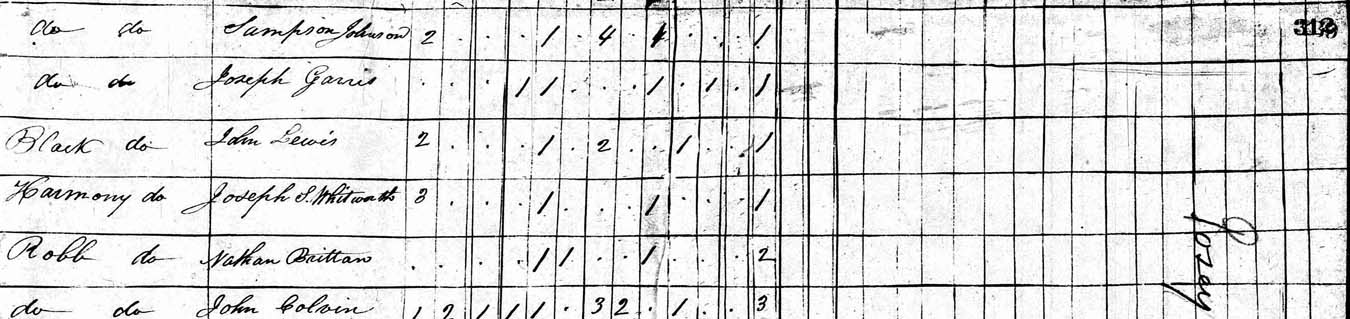 do do Sampson Johnson 2 . . . 1 . 4 . 1 . . . 1 312
do do Joseph Garris . . . . 1 1 . . . 1 . 1 . 1
Black do John Lewis 2 . . . 1 . 2 . . 1 . . 1
Harmony do Joseph S. Whitworth 3 . . . 1 . . . 1 . . . 1
Robb do Nathan Brittan . . . . 1 1 . . 1 . . . 2
do do John Colvin 1 2 1 1 1 . 3 2 . 1 . . 3
Posey